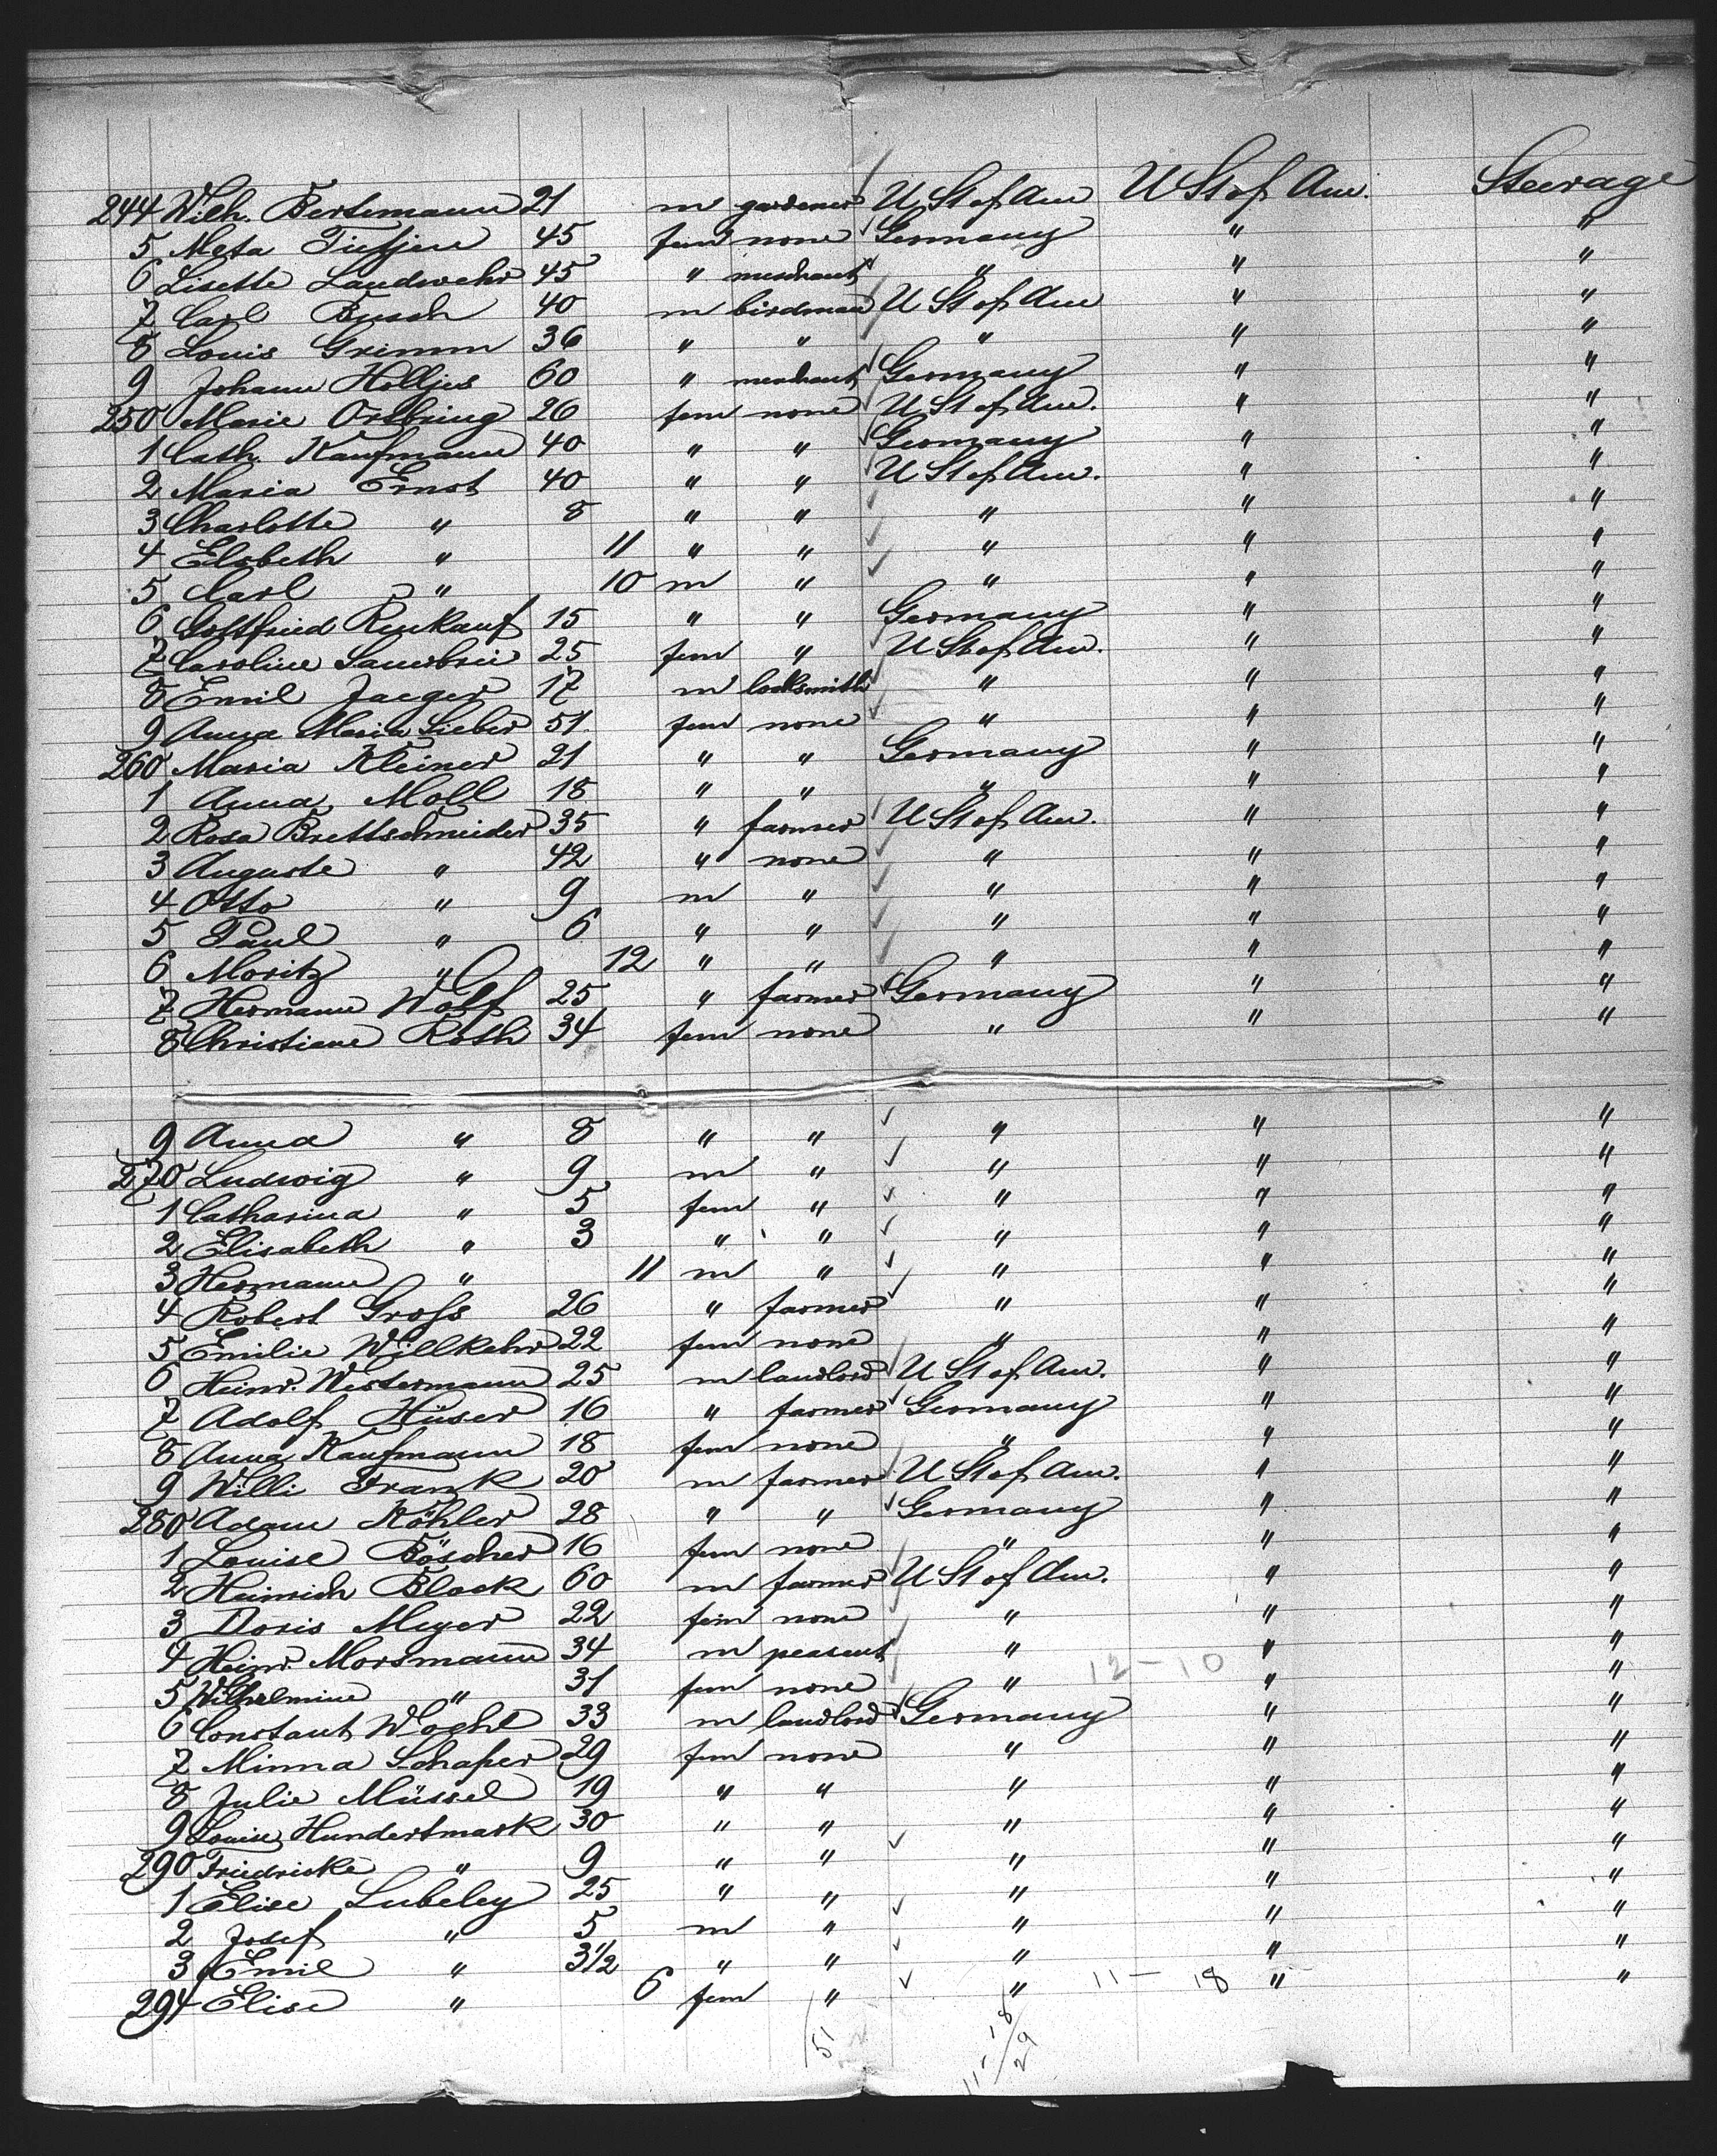 244 Wilh. Bertemann 21 m gardener U St of Am U St of Am. Steerage
5 Meta Tietjen 45 fem none Germany " "
6 Lisette Landwehr 45 " merchant " " "
7 Carl Busch 40 m birdman U St of Am " "
8 Louis Grimm 36 " " " " "
9 Johann Holljes 60 " merchant Germany " "
250 Marie Ortbring 26 fem none U St of Am. " "
1 Cath. Kaufmann 40 " " Germany " "
2 Maria Ernst 40 " " U St of Am. " "
3 Charlotte " 8 " " " " "
4 Elsbeth " 11 " " " " "
5 Carl " 10 m " " " "
6 Gottfried Rinkauf 15 " " Germany " "
7 Caroline 25 fem " U St of Am. " "
8 Emil Jaeger 17 m locksmith " " "
9 Anna Maria Sieber 51 fem none " " "
260 Maria Kleiner 21 " " Germany " "
1 Anna Moll 18 " " " " "
2 Rosa Brettschneider 35 " farmer U St of Am. " "
3 Auguste " 42 " none " " "
4 Otto " 9 m " " " "
5 Paul " 6 " " " " "
6 Moritz " 12 " " " " "
7 Hermann Wolf 25 " farmer Germany " "
8 Christiane Roth 34 fem none " " "
9 Anna " 8 " " " " "
270 Ludwig " 9 m " " " "
1 Catharina " 5 fem " " " "
2 Elisabeth " 3 " " " " "
3 Hermann " 11 m " " " "
4 Robert Gross 26 " farmer " " "
5 Emilie Willkehr 22 fem none " " "
6 Heinr. Westermann 25 m landlord U St of Am. " "
7 Adolf Hüser 16 " farmer Germany " "
8 Anna Kaufmann 18 fem none " " "
9 Willi Frank 20 m farmer U St of Am. " "
280 Adam Köhler 28 " " Germany " "
1 Louise Böscher 16 fem none " " "
2 Heinrich Block 60 m farmer U St of Am. " "
3 Doris Meyer 22 fem none " " "
4 Heinr. Morsmann 34 m peasant " " "
12-10
5 Wilhelmine " 31 fem none " " "
6 Constant Woehl 33 m landlord Germany " "
7 Minna Schaper 29 fem none " " "
8 Julie Müssel 19 " " " " "
9 Louise Hundertmark 30 " " " " "
290 Friedricke " 9 " " " " "
1 Elise Lubeley 25 " " " " "
2 Josef " 5 m " " " "
3 Emil " 3 1/2 " " " " "
294 Elise " 6 fem " " 11 - 18 " "
51
11-18/29